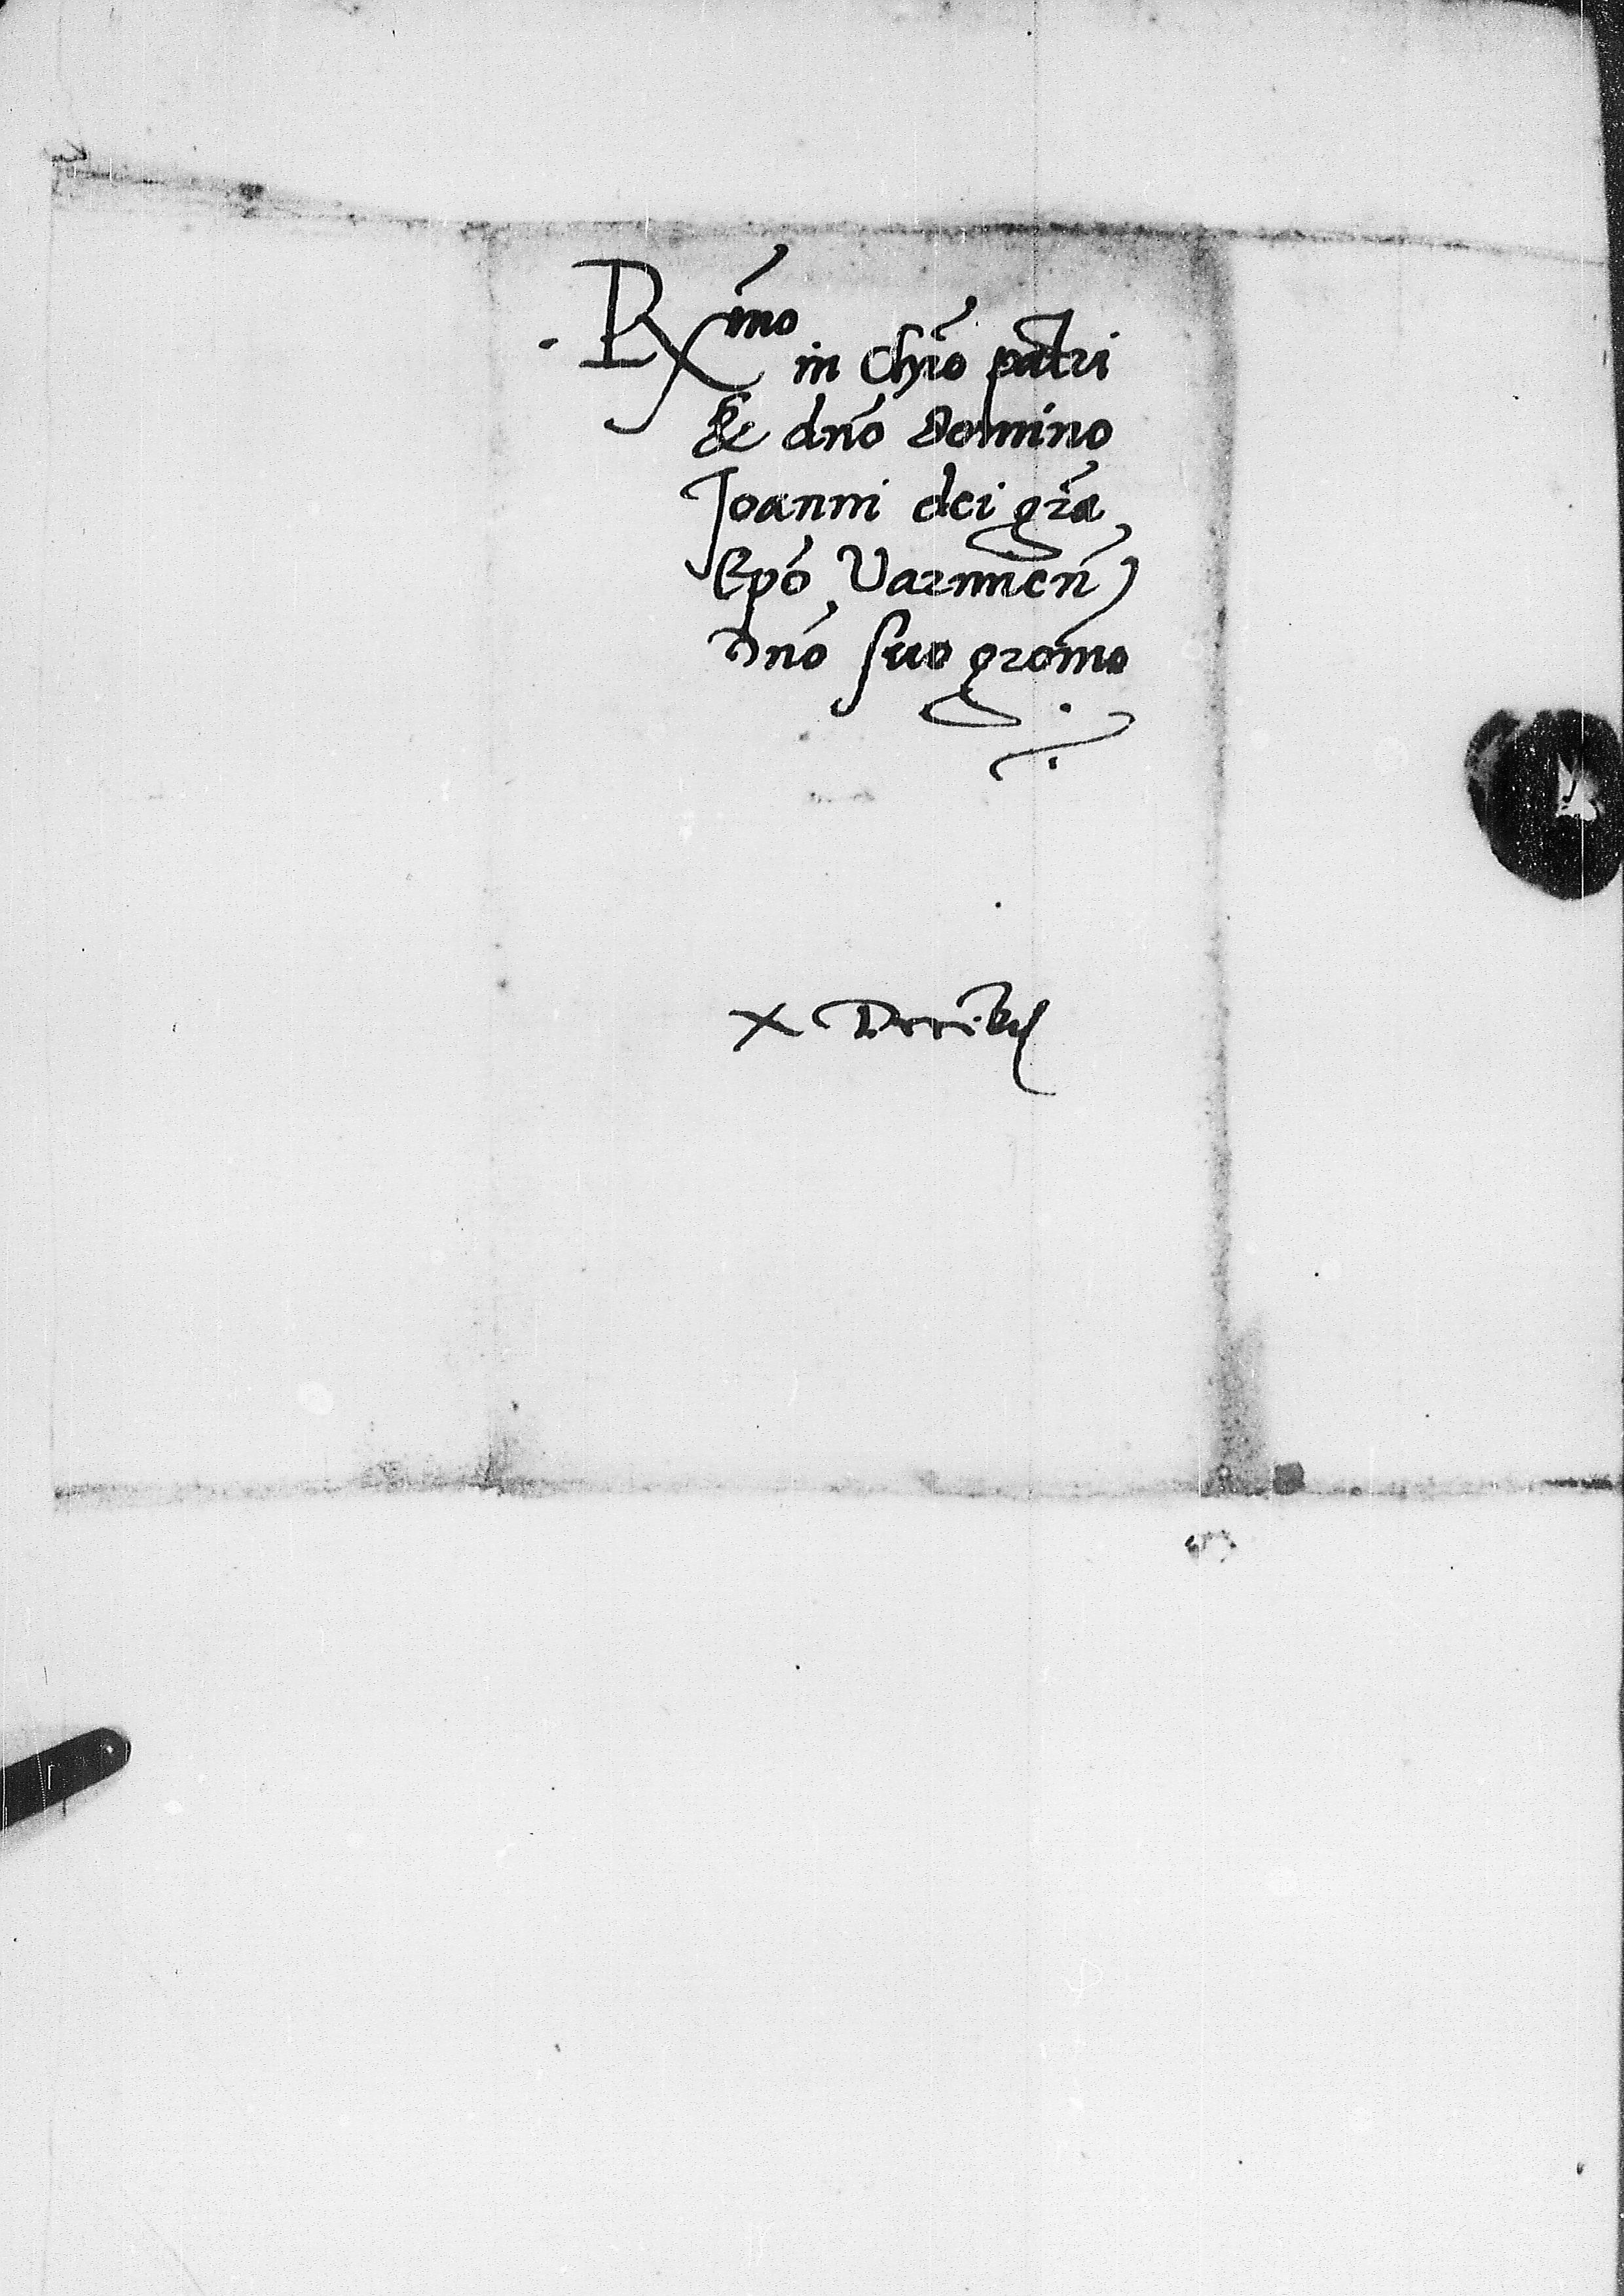 Rx̄mo
in Chr̄o patri
& dn̄o Domino
Joanni dei gr̄a
Ep̄o Varmien̄
Dn̄o suo gr̄omo